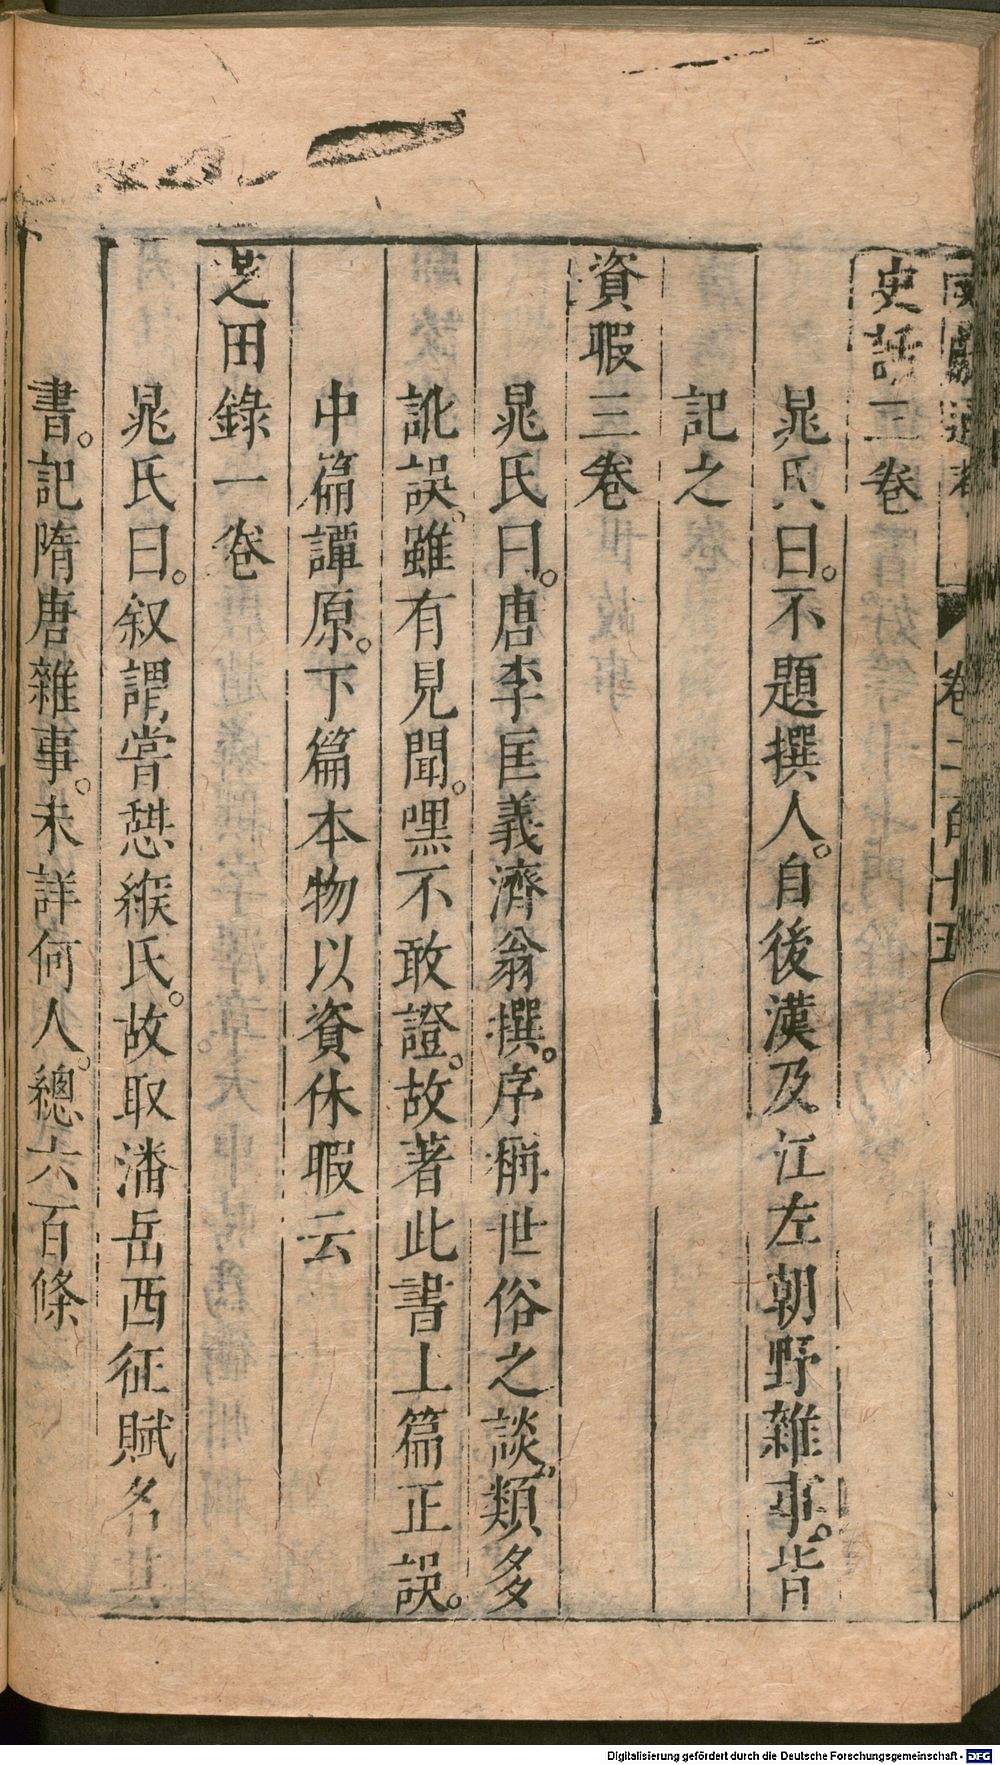 文獻通考 卷二百十五
史話三卷
晁氏曰。不題撰人。自後漢及江左朝野雜事。皆
記之
資暇三卷
晁氏曰。唐李匡義濟翁撰。序稱世俗之談。類多
訛誤。雖有見聞。嘿不敢證。故著此書上篇正誤。
中篇譚原。下篇本物以資休暇云
芝田錄一卷
晁氏曰。叙謂嘗憇緱氏。故取潘岳西征賦名其
書。記隋唐雜事。未詳何人。總六百條
Digitalisierung gefördert durch die Deutsche Forschungsgemeinschaft - DFG